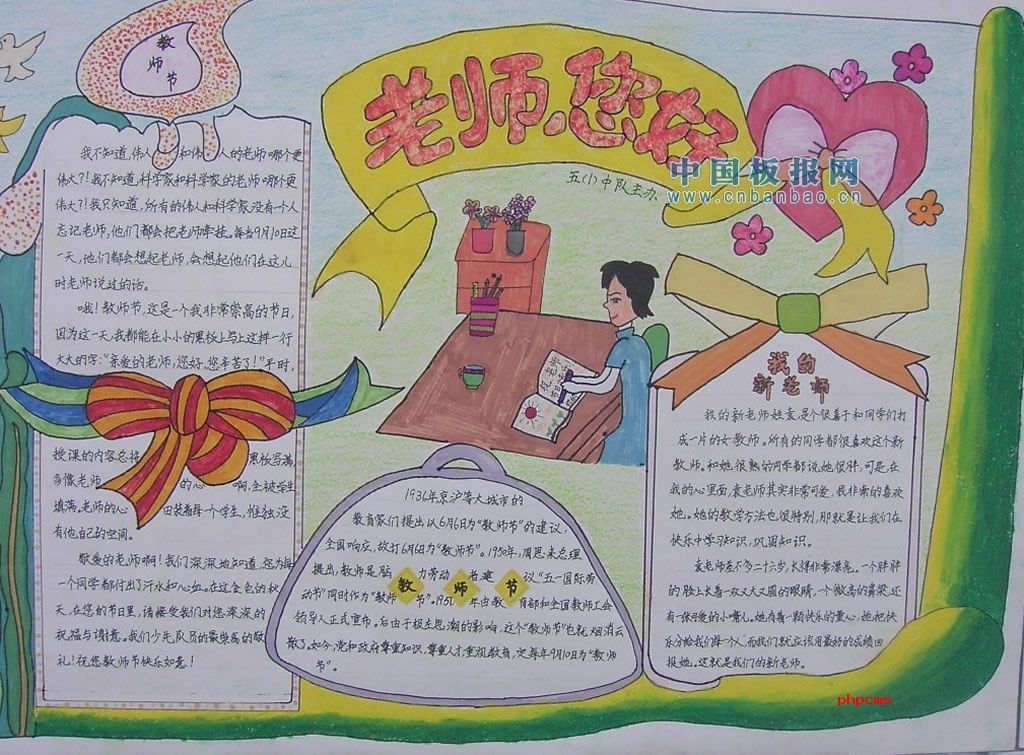 教
师
节
老师,您好
五(1)中队主办
中国板报网
www.cnbanbao.cn
我不知道,伟人 和伟 人的老师哪个更
伟大?!我不知道,科学家和科学家的老师哪个更
伟大?!我只知道,所有的伟人和科学家没有一个人
忘记老师,他们都会把老师牵挂。每当9月10日这
一天,他们都会想起老师,会想起他们在这儿
时老师说过的话。
哦!教师节,这是一个我非常崇高的节日,
因为这一天,我都能在小小的黑板上写上这样一行
大大的字:“亲爱的老师,您好,您辛苦了!”平时,
授课的内容总将 黑板写满,
多像老师 的心 啊,全被学生
填满。老师的心 由装着每个学生,惟独没
有他自己的空间。
敬爱的老师啊!我们深深地知道,您为每
一个同学都付出了汗水和心血。在这金色的秋
天,在您的节日里,请接受我们对您深深的
祝福与谢意。我们少先队员的最崇高的敬
礼!祝您教师节快乐如意!
1936年,京沪等大城市的
教育家们提出以6月6日为“教师节”的建议,
全国响应,故打6月6日为“教师节”。1950年,周恩来总理
提出,教师是脑 力劳动 者,建 议“五一国际劳
动节”同时作为“教师 节”。1951 年由教 育部和全国教师工会
教 师 节
领导人正式宣布。后由于极左思潮的影响,这个“教师节”也就烟消云
散了。如今,党和政府尊重知识,尊重人才,重视教育,定每年9月10日为“教师
节”。
我的
新老师
我的新老师姓袁,是个很善于和同学们打
成一片的女教师。所有的同学都很喜欢这个新
教师。和她很熟的同学都说她很胖,可是,在
我的心里面,袁老师其实非常可爱,我非常的喜欢
她。她的教学方法也很特别,那就是让我们在
快乐中学习知识,巩固知识。
袁老师差不多二十六岁,长得非常漂亮。一个胖胖
的脸上长着一双大大又圆的眼睛,一个微高的鼻梁,还
有一张可爱的小嘴儿。她有着一颗快乐的童心,她把快
乐分给我们每个人,而我们就应该用最好的成绩回
报她。这就是我们的新老师。
phpcms